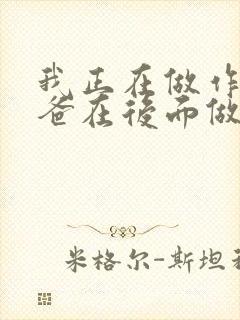 我正在做作
爸在後面做
米格尔-斯坦